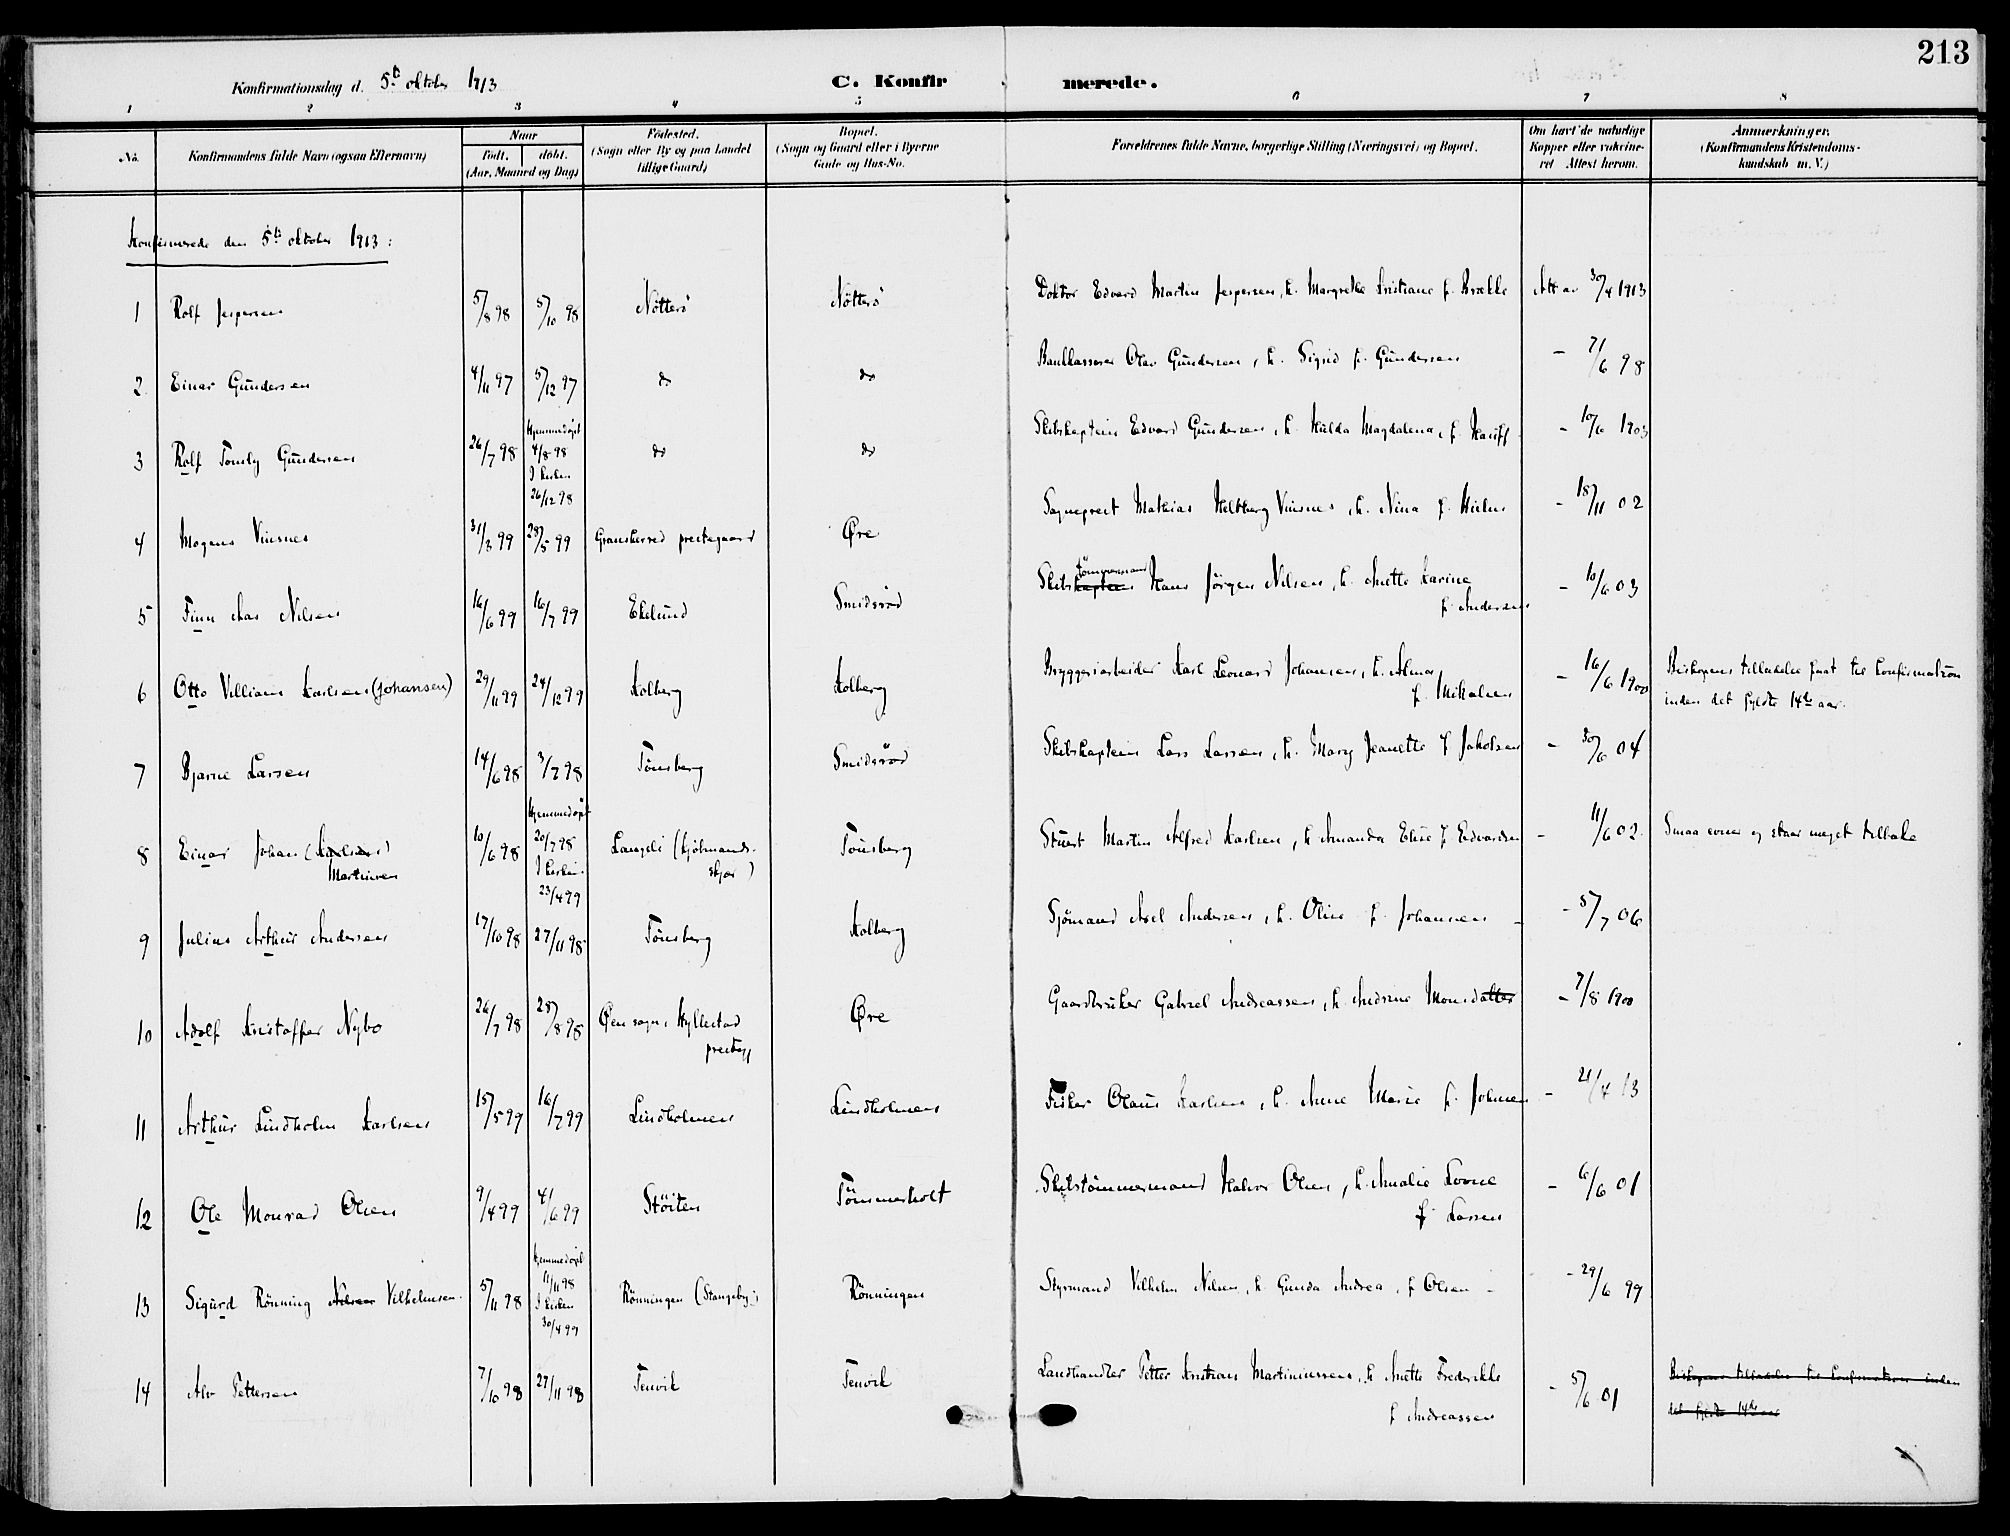 213
Konfirmationsdag d. 5te oktober 1913
C. Konfirmerede.
1 2 3 4 5 6 7 8
No.
Konfirmandens fulde Navn (ogsaa Efternavn)
Naar
født. døbt.
(Aar, Maaned og Dag)
Fødested.
(Sogn eller By og paa Landet
tillige Gaard)
Bopæl.
(Sogn og Gaard eller i Byerne
Gade og Hus-No.
Forældrenes fulde Navne, borgerlige Stilling (Næringsvei) og Bopæl.
Om havt de naturlige
Kopper eller vakcine-
ret Attest herom.
Anmærkninger.
(Konfirmandens Kristendoms-
kundskab m. V.)
Konfirmerede den 5te oktober 1913:
1 Rolf Jespersen 5/8 98 5/10 98 Nötterö Nötterö Doktor Edvard Martin Jespersen, h. Margrethe Kristiane f. Brække Att av 30/4 1913
2 Einar Gundersen 4/11 97 5/12 97 do do Bankkasserer Olav Gundersen, h. Sigrid f. Gundersen - 7/6 98
3 Rolf Gundersen 26/7 98 Hjemmedöpt 4/8 98 I kirken 26/12 98 do do Skibskaptein Edvard Gundersen, h. Hulda Magdalena, f. Hauff - 10/6 1903
4 Mogens Vinsnes 31/3 99 28/5 99 Gransherred prestegaard Øre Sogneprest Mathias Vinsnes, h. Nina f. - 18/11 02
5 Finn Nilsen 16/6 99 16/7 99 Ekelund Smidsröd Skibskaptein tömmermand Hans Jörgen Nilsen, h. Anette Karine
f. Andersen - 10/6 03
6 Otto Villiam Karlsen (Johansen) 29/11 99 24/12 99 Kolberg Kolberg Bryggeriarbeider Karl Leonard Johansen, h. Alma
f. Mikalsen - 16/6 1900 Biskopens tilladelse faat til konfirmation
inden det fyldte 14de aar.
7 Bjarne Larsen 14/6 98 3/7 98 Tönsberg Smidsröd Skibskaptein Lars Larsen, h. Mary Jeanette f Jakobsen - 30/6 04
8 Einar Johan (Karlsen)
Martinsen 10/6 98 Hjemmedöpt 20/7 98 I kirken 23/4 99 Langeli (Kjölmands-
skjær) Tönsberg Stuert Martin Alfred Karlsen, h Amanda Elise f Edvardsen - 11/6 02 Smaa evner og staar meget tilbake
9 Julius Arthur Andersen 17/10 98 27/11 98 Tönsberg Kolberg Sjömand Axel Andersen, h. Oline f. Johansen - 5/7 06
10 Adolf Kristoffer Nybo 26/7 98 28/8 98 Øen sogn, Hyllestad
prestegj Øre Gaardbruker Gabriel Andreassen, h. Andrine Monsdatter - 7/8 1900
11 Arthur Lindholm Karlsen 15/5 99 16/7 99 Lindholmen Lindholmen Fisker Olaus Karlsen, h. Anne Marie f. Johnsen - 21/4 13
12 Ole Monrad Olsen 9/4 99 4/6 99 Stöiten Tömmerholt Skibstömmermand Halvor Olsen, h. Amalie Lovise
f. Larsen - 6/6 01
13 Sigurd Rönning Nilsen Vilhelmsen 5/11 98 Hjemmedöpt 11/11 98 I kirken 30/4 99 Rönningen (Stangeby) Rönningen Styrmand Vilhelm Nilsen, h. Gunda Andrea, f Olsen - 29/6 99
14 Alv Pettersen 7/10 98 27/11 98 Tenvik Tenvik Landhandler Petter Kristian Martiniussen, h Anette Fredrikke
f Andreassen - 5/6 01 Biskopens tilladelse til konfirmation inden
det fyldte 14de aar